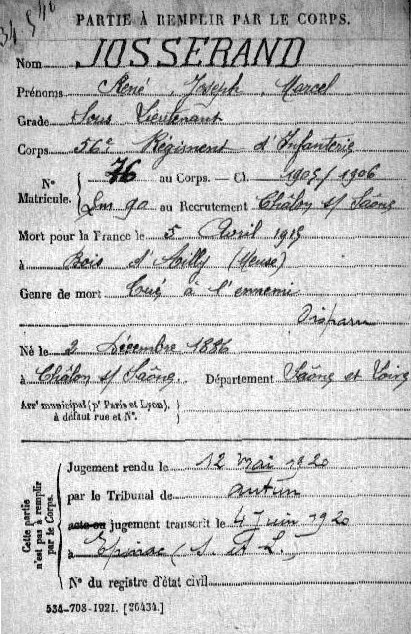 34540
PARTIE À REMPLIR PAR LE CORPS.
Nom JOSSERAND
Prénoms René, Joseph, Marcel
Grade Sous Lieutenant
Corps 56e Régiment d'Infanterie
N° Matricule. { 76 au Corps. — Cl. 1905/1906
Lm 90 au Recrutement Châlon s/ Saône
Mort pour la France le 5 Avril 1915
à Bois d'Ailly (Meuse)
Genre de mort Tué à l'ennemi
Disparu
Né le 2 Décembre 1886
à Châlon s/ Saône. Département Saône et Loire
Arrt municipal (pr Paris et Lyon), à défaut rue et N°. }
Cette partie n'est pas à remplir par le Corps.
Jugement rendu le 12 Mai 1920
par le Tribunal de Autun
acte ou jugement transcrit le 4 Juin 1920
à Epinac (S. et L.)
N° du registre d'état civil
534-708-1921. [26434.]